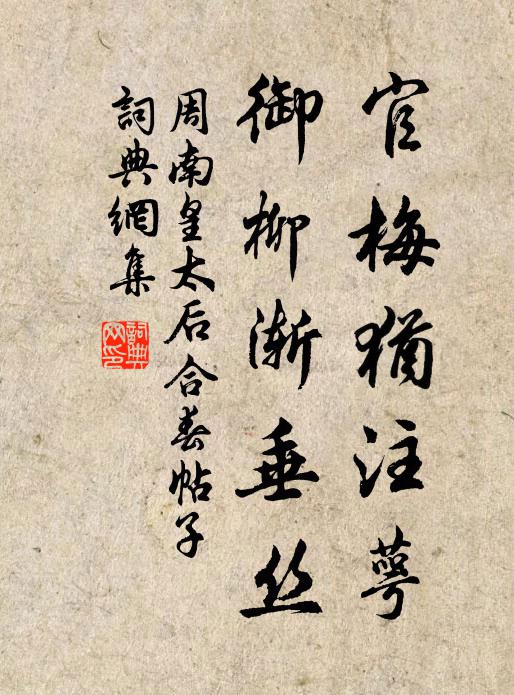 官梅猶注萼
御柳漸垂丝
周南皇太后合春帖子
詞典網集
詞典网印